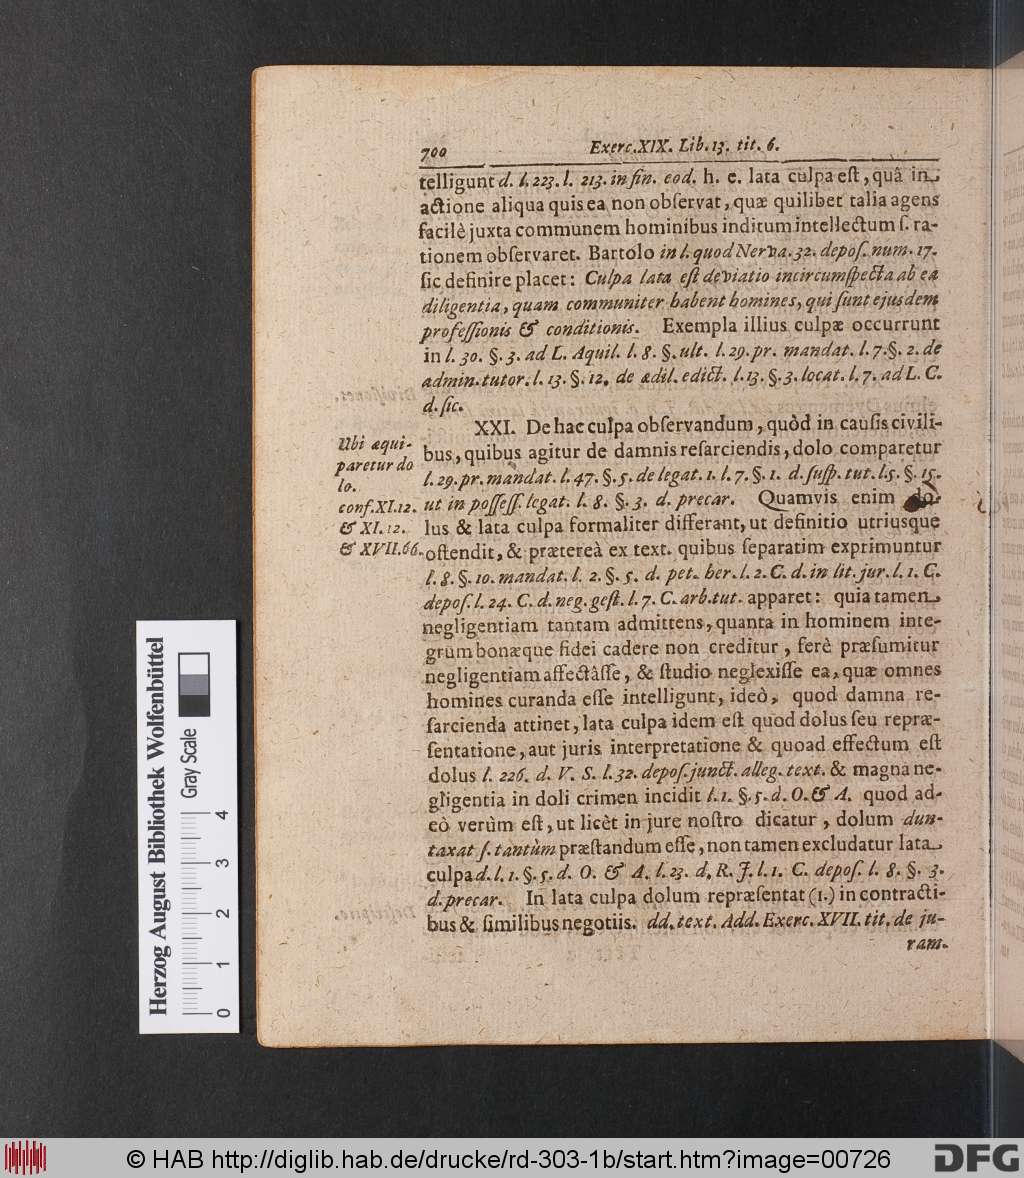 700 Exerc. XIX. Lib. 13. tit. 6.
telligunt d. l. 223. l. 213. in fin. eod. h. e. lata culpa est, quâ in
actione aliqua quis ea non observat, quæ quilibet talia agens
facilè juxta communem hominibus inditum intellectum s. ra-
tionem observaret. Bartolo in l. quod Nerva. 32. depos. num. 17.
sic definire placet: Culpa lata est deviatio incircumspecta ab ea
diligentia, quam communiter habent homines, qui sunt ejusdem
professionis & conditionis. Exempla illius culpæ occurrunt
in l. 30. §. 3. ad L. Aquil. l. 8. §. ult. l. 29. pr. mandat. l. 7. §. 2. de
admin. tutor. l. 13. §. 12. de ædil. edict. l. 13. §. 3. locat. l. 7. ad L. C.
d. sic.
XXI. De hac culpa observandum, quòd in causis civili-
bus, quibus agitur de damnis resarciendis, dolo comparetur
l. 29. pr. mandat. l. 47. §. 5. de legat. 1. l. 7. §. 1. d. susp. tut. l. 5. §. 15.
ut in possess. legat. l. 8. §. 3. d. precar. Quamvis enim do-
lus & lata culpa formaliter differant, ut definitio utriusque
ostendit, & prætereà ex text. quibus separatim exprimuntur
l. 8. §. 10. mandat. l. 2. §. 5. d. pet. her. l. 2. C. d. in lit. jur. l. 1. C.
depos. l. 24. C. d. neg. gest. l. 7. C. arb. tut. apparet: quia tamen
negligentiam tantam admittens, quanta in hominem inte-
grum bonæque fidei cadere non creditur, ferè præsumitur
negligentiam affectâsse, & studio neglexisse ea, quæ omnes
homines curanda esse intelligunt, ideò, quod damna re-
sarcienda attinet, lata culpa idem est quod dolus seu repræ-
sentatione, aut juris interpretatione & quoad effectum est
dolus l. 226. d. V. S. l. 32. depos. junct. alleg. text. & magna ne-
gligentia in doli crimen incidit l. 1. §. 5. d. O. & A. quod ad-
eò verùm est, ut licèt in jure nostro dicatur, dolum dun-
taxat s. tantùm præstandum esse, non tamen excludatur lata
culpa d. l. 1. §. 5. d. O. & A. l. 23. d. R. J. l. 1. C. depos. l. 8. §. 3.
d. precar. In lata culpa dolum repræsentat (1.) in contracti-
bus & similibus negotiis. dd. text. Add. Exerc. XVII. tit. de ju-
ram.
Ubi æqui-
paretur do
lo.
conf. XI. 12.
& XI. 12.
& XVII. 66.
Herzog August Bibliothek Wolfenbüttel
Gray Scale
0 1 2 3 4
© HAB http://diglib.hab.de/drucke/rd-303-1b/start.htm?image=00726
DFG